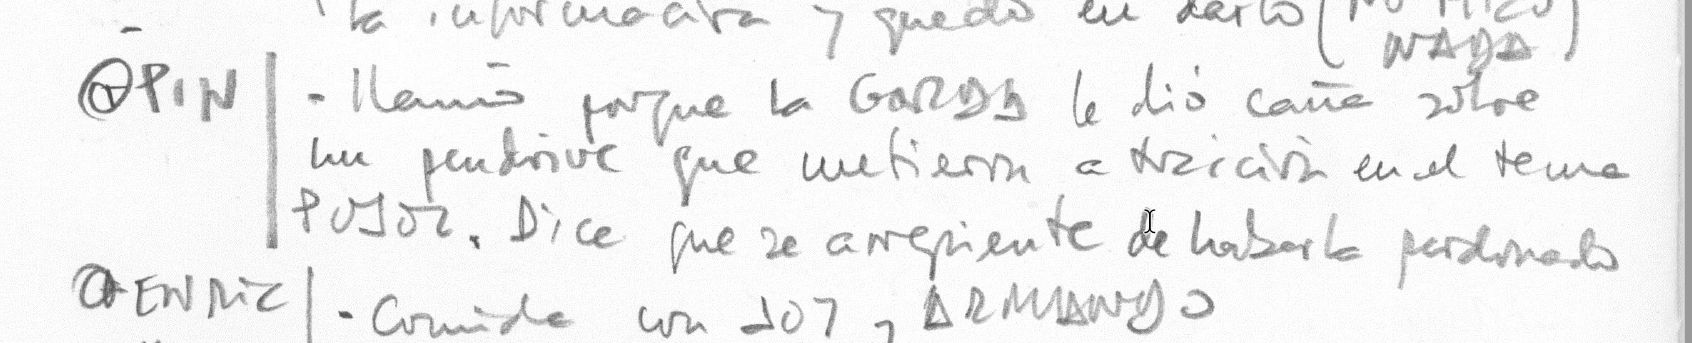 la información y quedó en darlo (NO HIZO
NADA)
PIN - Llamó porque la GORDA le dió caña sobre
un pendrive que metieron a traición en el tema
PUJOL. Dice que se arrepiente de haberla perdonado
ENRIC - Comida con JOT y ARMANDO